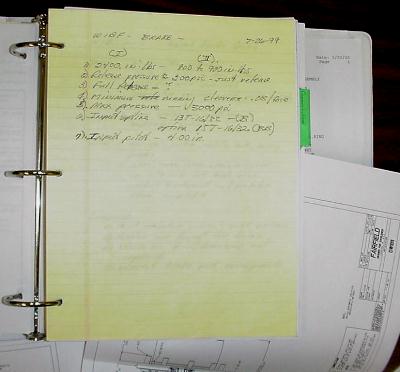 WIBF - BRAKE -
7-26-99
(I) (II)
1) 2400 in·lbs - 800 to 900 in·lbs.
2) Release pressure to 200 psi - Just release
3) Full Release = ?
4) Minimum running clearance - .08/
5) Max pressure - 3000 psi
6) Input spline - 13T-16/32 - (B)
option 15T-16/32 (BB)
7) Input pilot - 4.00 in.
Date:
Page
FAIRFIELD